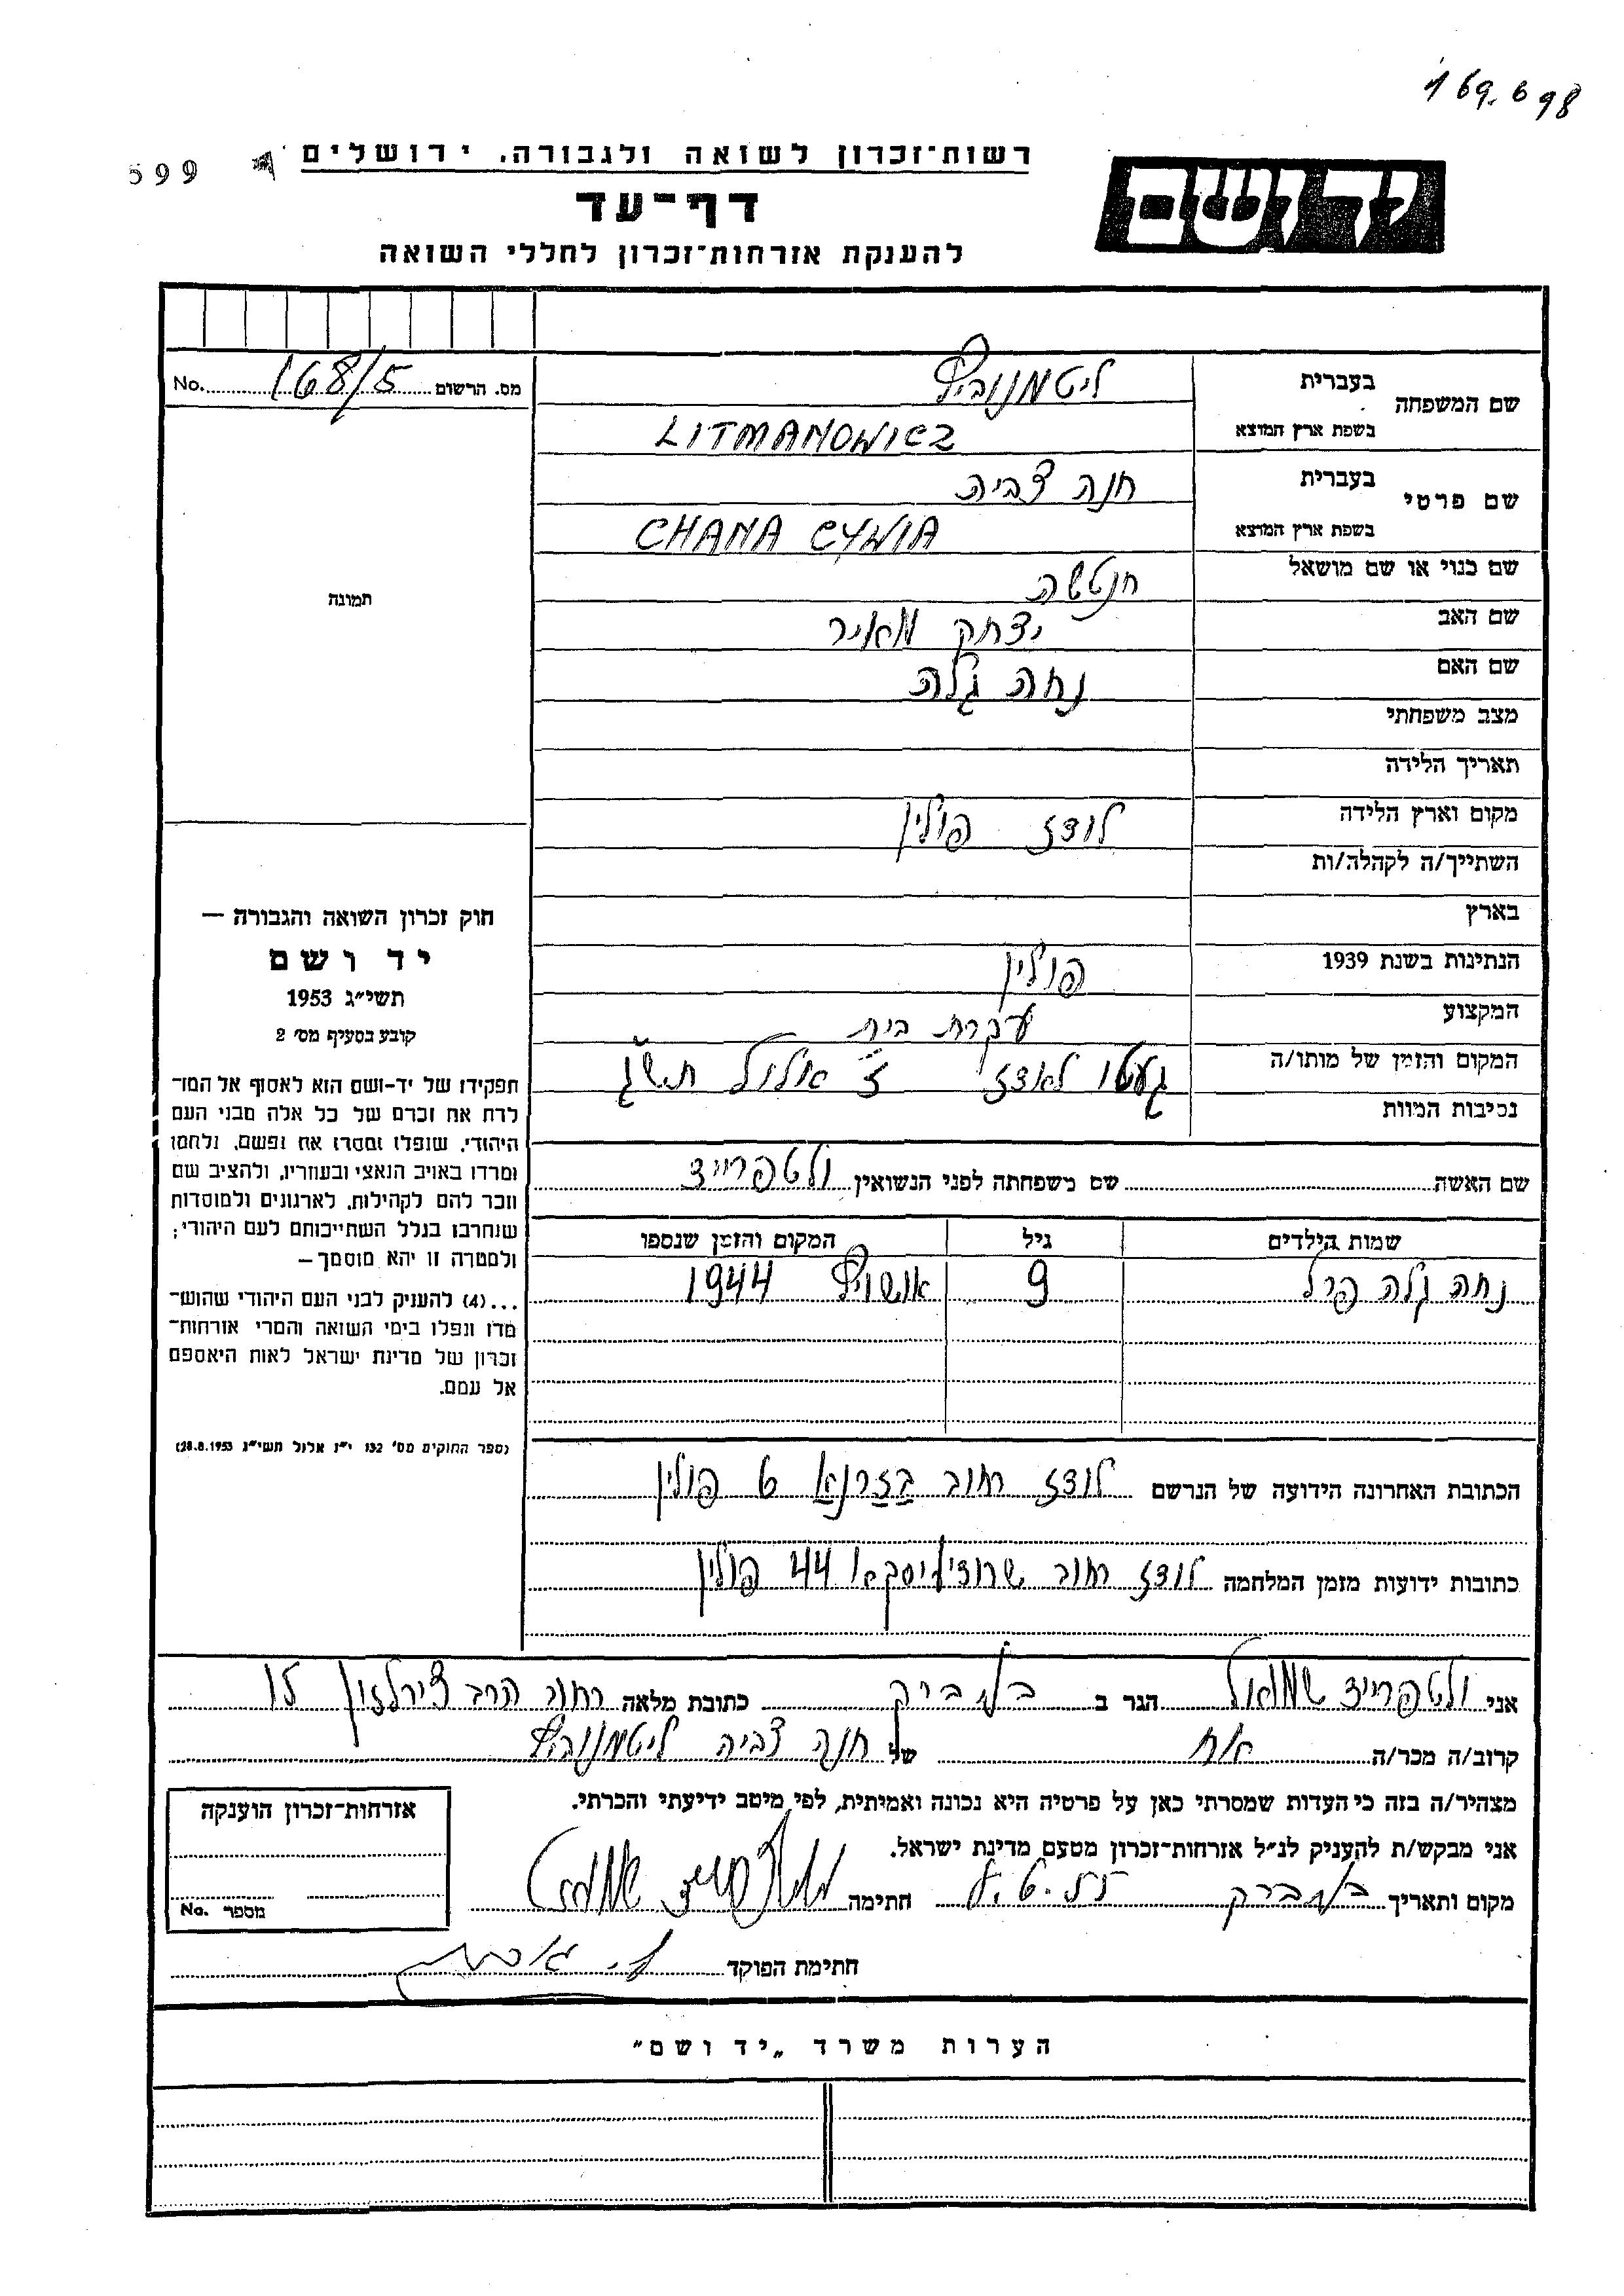 169.698
599
רשות־זכרון לשואה ולגבורה, ירושלים
יד ושם
דף־עד
להענקת אזרחות־זכרון לחללי השואה
מס. הרשום 168/5 No.
שם המשפחה בעברית ליטמנוביץ
בשפת ארץ המוצא LITMANOWICZ
שם פרטי בעברית חנה צביה
בשפת ארץ המוצא CHANA CYWIA
שם כנוי או שם מושאל חנטשה
שם האב יצחק מאיר
שם האם נחה גלה
מצב משפחתי
תאריך הלידה
מקום וארץ הלידה לודז פולין
השתייך/ה לקהלה/ות
בארץ
הנתינות בשנת 1939 פולין
המקצוע עקרת בית
המקום והזמן של מותו/ה געטו לאודז ז' אלול תש"ג
נסיבות המוות
תמונה
חוק זכרון השואה והגבורה —
יד ושם
תשי״ג 1953
קובע בסעיף מס׳ 2
תפקידו של יד-ושם הוא לאסוף אל המו־
לדת את זכרם של כל אלה מבני העם
היהודי, שנפלו ומסרו את נפשם, נלחמו
ומרדו באויב הנאצי ובעוזריו, ולהציב שם
וזכר להם לקהילות, לארגונים ולמוסדות
שנחרבו בגלל השתייכותם לעם היהודי;
ולמטרה זו יהא מוסמך—
...(4) להעניק לבני העם היהודי שהוש־
מדו ונפלו בימי השואה והמרי אזרחות־
זכרון של מדינת ישראל לאות היאספם
אל עמם.
(ספר החוקים מס׳ 132 י״ז אלול תשי״ג 28.8.1953)
שם האשה שם משפחתה לפני הנשואין ולטפרייד
שמות הילדים גיל המקום והזמן שנספו
נחה גלה פרל 9 אושויץ 1944
הכתובת האחרונה הידועה של הנרשם לודז רחוב בזרנא 6 פולין
כתובות ידועות מזמן המלחמה לודז רחוב 44 פולין
אני ולטפרייד שמואל הגר ב בני ברק כתובת מלאה רחוב הרב 15
קרוב/ה מכר/ה אח של חנה צביה ליטמנוביץ
מצהיר/ה בזה כי העדות שמסרתי כאן על פרטיה היא נכונה ואמיתית, לפי מיטב ידיעתי והכרתי.
אני מבקש/ת להעניק לנ״ל אזרחות־זכרון מטעם מדינת ישראל.
מקום ותאריך בני ברק חתימה ולטפרייד שמואל
חתימת הפוקד
אזרחות־זכרון הוענקה
מספר No.
הערות משרד „יד ושם״